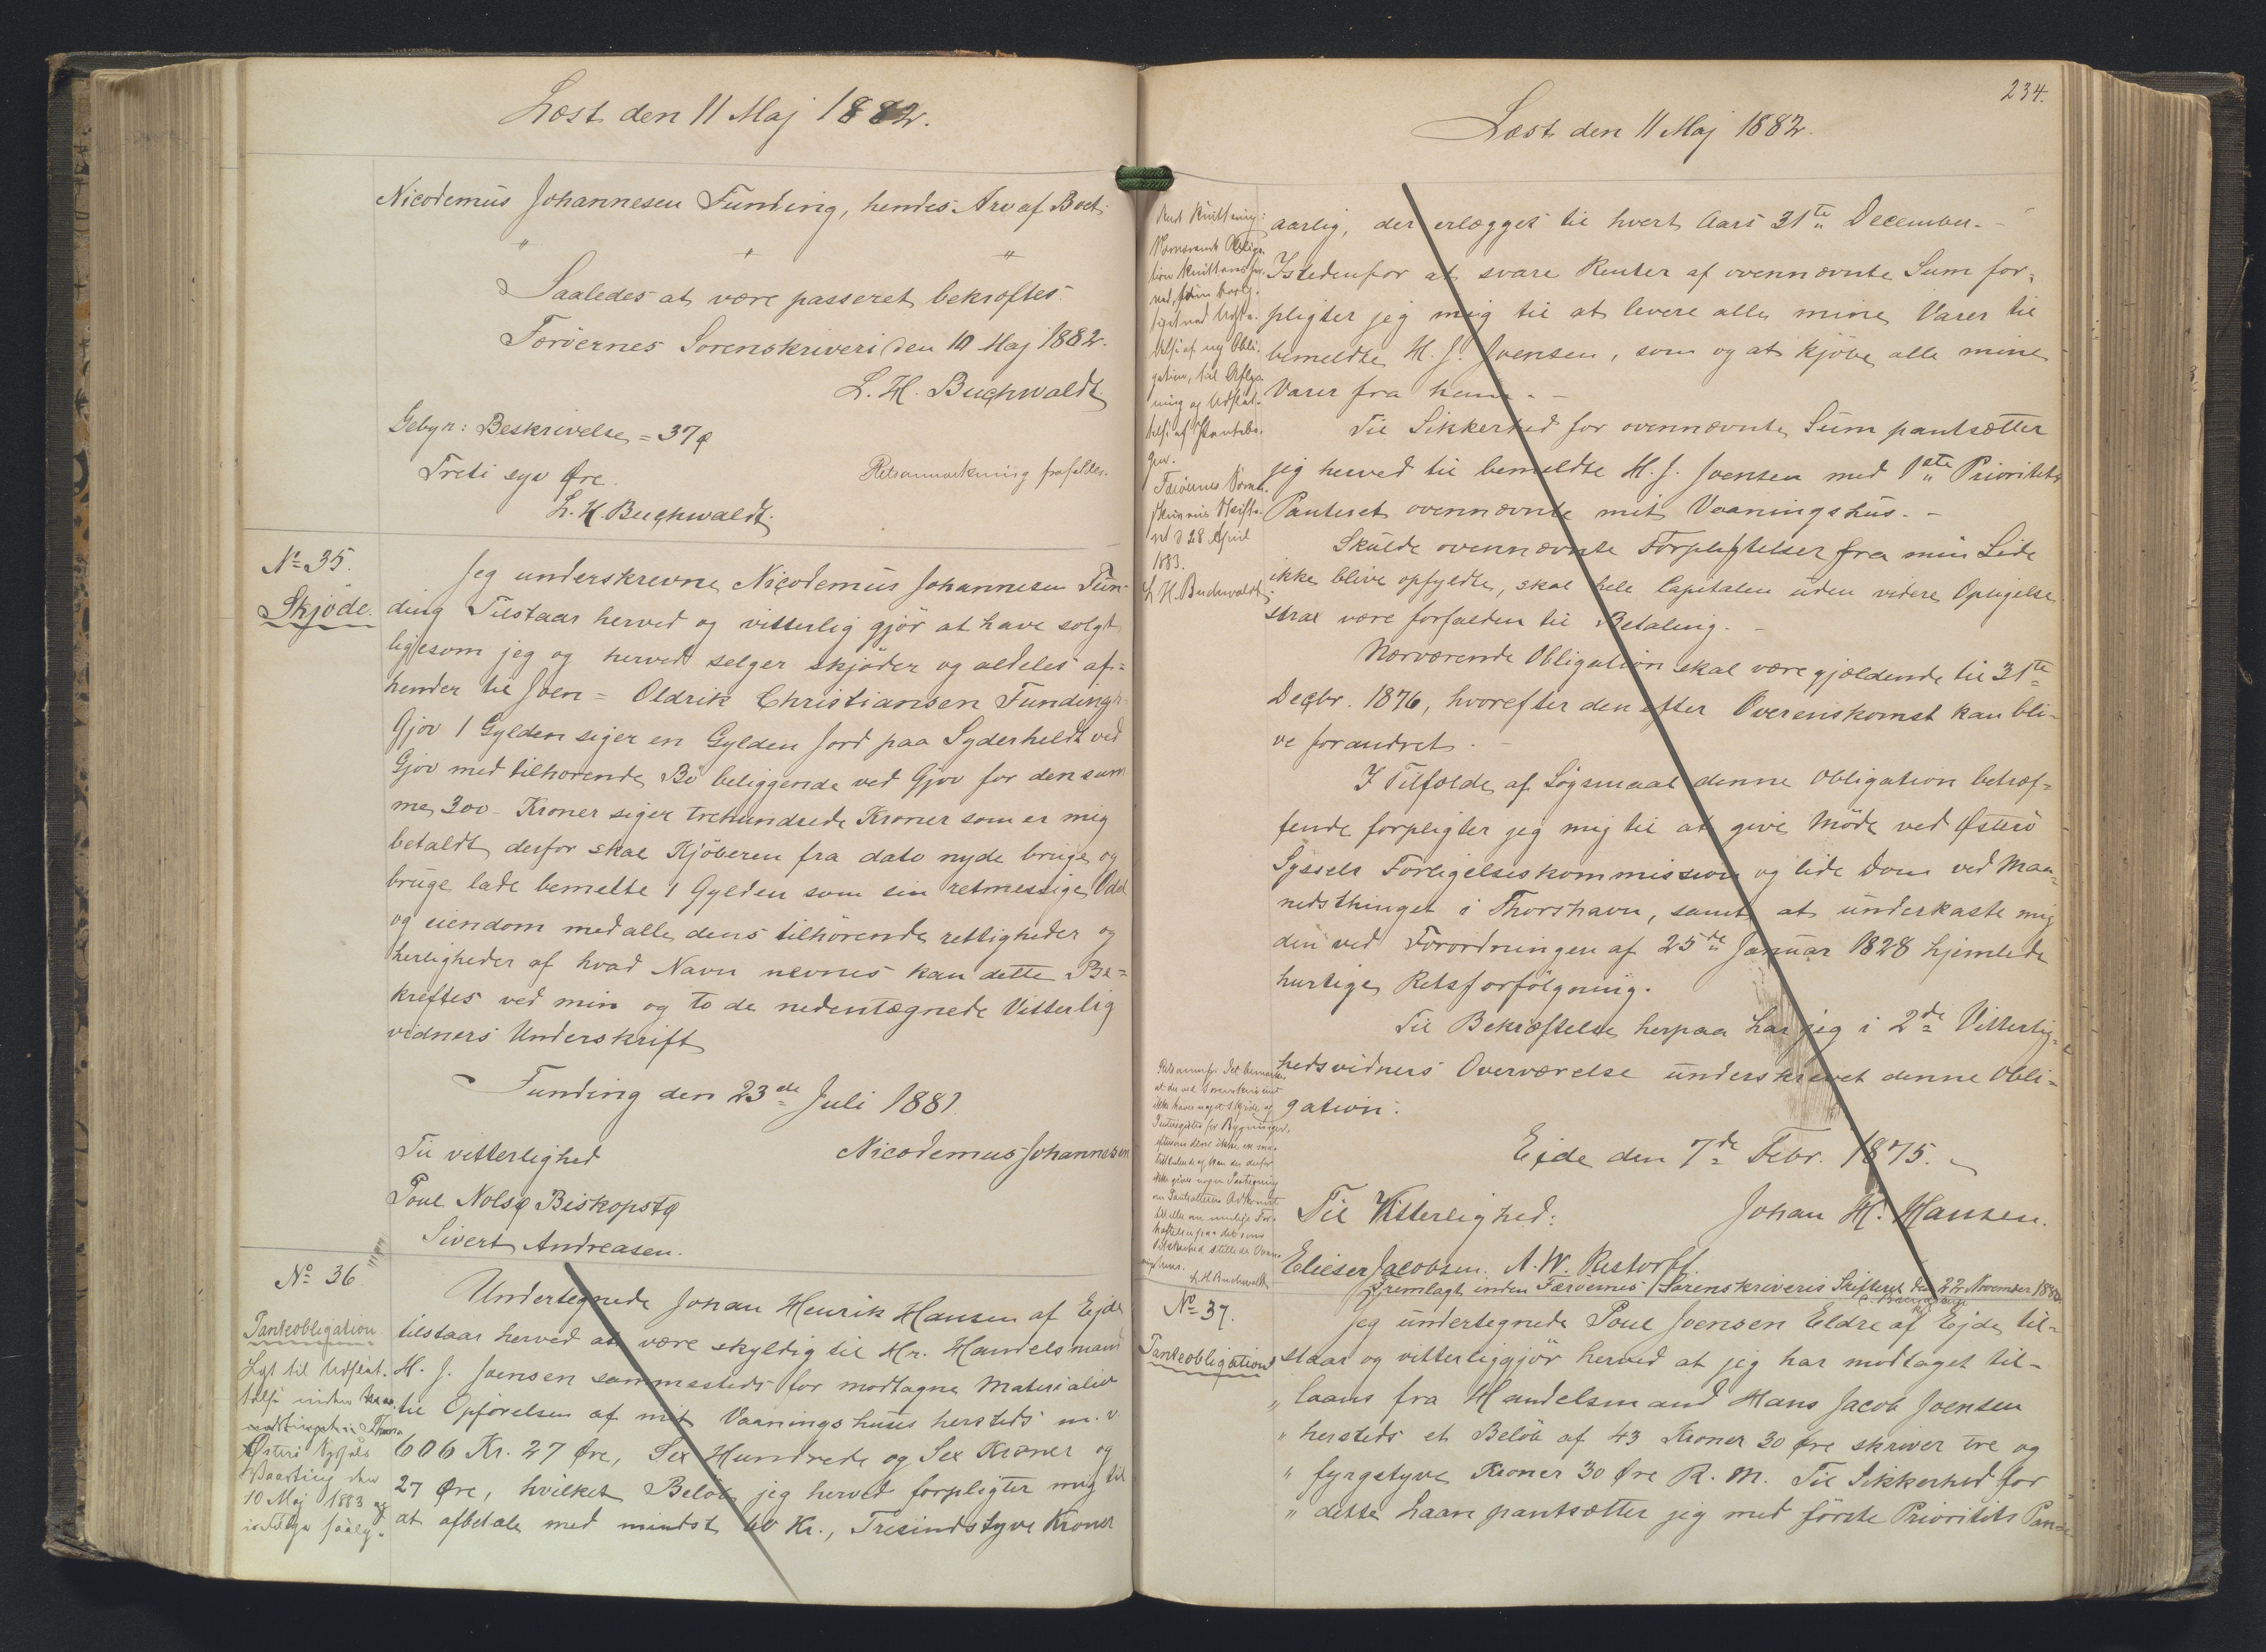 Læst den 11 Maj 1882.
Nicodemus Johannesen Funding, hendes Arv af Boet
" " "
Saaledes at være passeret bekræftes.
Færöernes Sorenskriveri den 10 Maj 1882.
L. H. Buchwaldt
Gebyr: Beskrivelse = 37 ø
Treti syv Øre.
Retsanmærkning frafaldes.
L. H. Buchwaldt.
No 35.
Skjöde.
Jeg underskrevne Nicodemus Johannesen Fun-
ding Tilstaar herved og vitterlig gjör at have solgt
ligesom jeg og herved selger skjöder og aldeles af-
hender til Joen = Oldrik Christiansen Funding
Gjov 1 Gylden siger en Gylden Jord paa Syderheldt ved
Gjov med tilhorende Bö beliggende ved Gjov for den sum
me 300 Kroner siger trehundrede Kroner som er mig
betaldt derfor skal Kjöberen fra dato nyde bruge og
bruge lade bemelte 1 Gylden som sin retmessige Odel
og eiendom med alle dens tilhörende rettigheder og
herligheder af hvad Navn nevnes kan dette Be-
kreftes ved min og to de nedentægnede Vitterlig
vidners Underskrift
Funding den 23de Juli 1881.
Til vitterlighed
Nicodemus Johannesen
Poul Nolsø Biskopstø
Sivert Andreasen.
No 36
Panteobligation
Lyst til Udslet-
telse inden
Østerø Syssels
Vaarting den
10 Maj 1883 og
Undertegnede Johan Henrik Hansen af Ejde
tilstaar herved at være skyldig til Hr. Handelsmand
H. J. Joensen sammesteds for modtagne Materialier
til Opförelsen af mit Vaaningshuus hersteds m. v.
606 Kr. 27 Øre, Sex Hundrede og Sex Kroner og
27 Øre, hvilket Belöb jeg herved forpligter mig til
at afbetale med mindst 60 Kr., Tresindstyve Kroner
234.
Læst den 11 Maj 1882.
aarlig, der erlægges til hvert Aars 31te December. -
Istedenfor at svare Renter af ovennævnte Sum for-
pligter jeg mig til at levere alle mine Varer til
bemeldte H. J. Joensen, som og at kjöbe alle mine
Varer fra ham. -
Til Sikkerhed for ovennævnte Sum pantsætter
jeg herved til bemeldte H. J. Joensen med 1ste Prioritets
Panteret ovennævnte mit Vaaningshus. -
Skulde ovennævnte Forpligtelser fra min Side
ikke blive opfyldte, skal hele Capitalen uden videre Opsigelse
strax være forfalden til Betaling. -
Nærværende Obligation skal være gjældende til 31te
Decbr. 1876, hvorefter den efter Overenskomst kan bli-
ve forandret. -
I Tilfælde af Søgsmaal denne Obligation betræf-
fende forpligter jeg mig til at give Möde ved Østerö
Syssels Forligelseskommission og lide Dom ved Maa-
nedsthinget i Thorshavn, samt at underkaste mig
den ved Forordningen af 25de Januar 1828 hjemlede
hurtige Retsforfölgning.
Til Bekræftelse herpaa har jeg i 2de Vitterlig-
hedsvidners Overværelse underskrevet denne Obli-
gation.
Ejde den 7de Febr. 1875.
Til Vitterlighed:
Johan H. Hansen.
Elieser Jacobsen. A. W. Restorff.
Fremlagt inden Færöernes Sorenskriveris Skifteret den 22 November 1880.
Nærværende Obliga-
tion kvitteres her-
ved,
telse af ny Obli-
gation, til Aflys-
ning og Udslet-
telse af Pantebo-
gen.
Færöernes Soren-
skriveris Skifte-
ret d 28 April
1883.
L. H. Buchwaldt.
Retsanm: Det bemærkes
at der ved Sorenskriveriet
ikke haves noget Skjöde og
Panteregister for Bygninger,
L. H. Buchwaldt
No 37.
Panteobligation
Jeg undertegnede Poul Joensen Eldre af Ejde til-
staar og vitterliggjör herved at jeg har modtaget til-
" laans fra Handelsmand Hans Jacob Joensen
" hersteds et Belöb af 43 Kroner 30 Øre skriver tre og
" fyrgetyve Kroner 30 Øre R. M. Til Sikkerhed for
" dette Laan pantsætter jeg med förste Prioritets Pan-